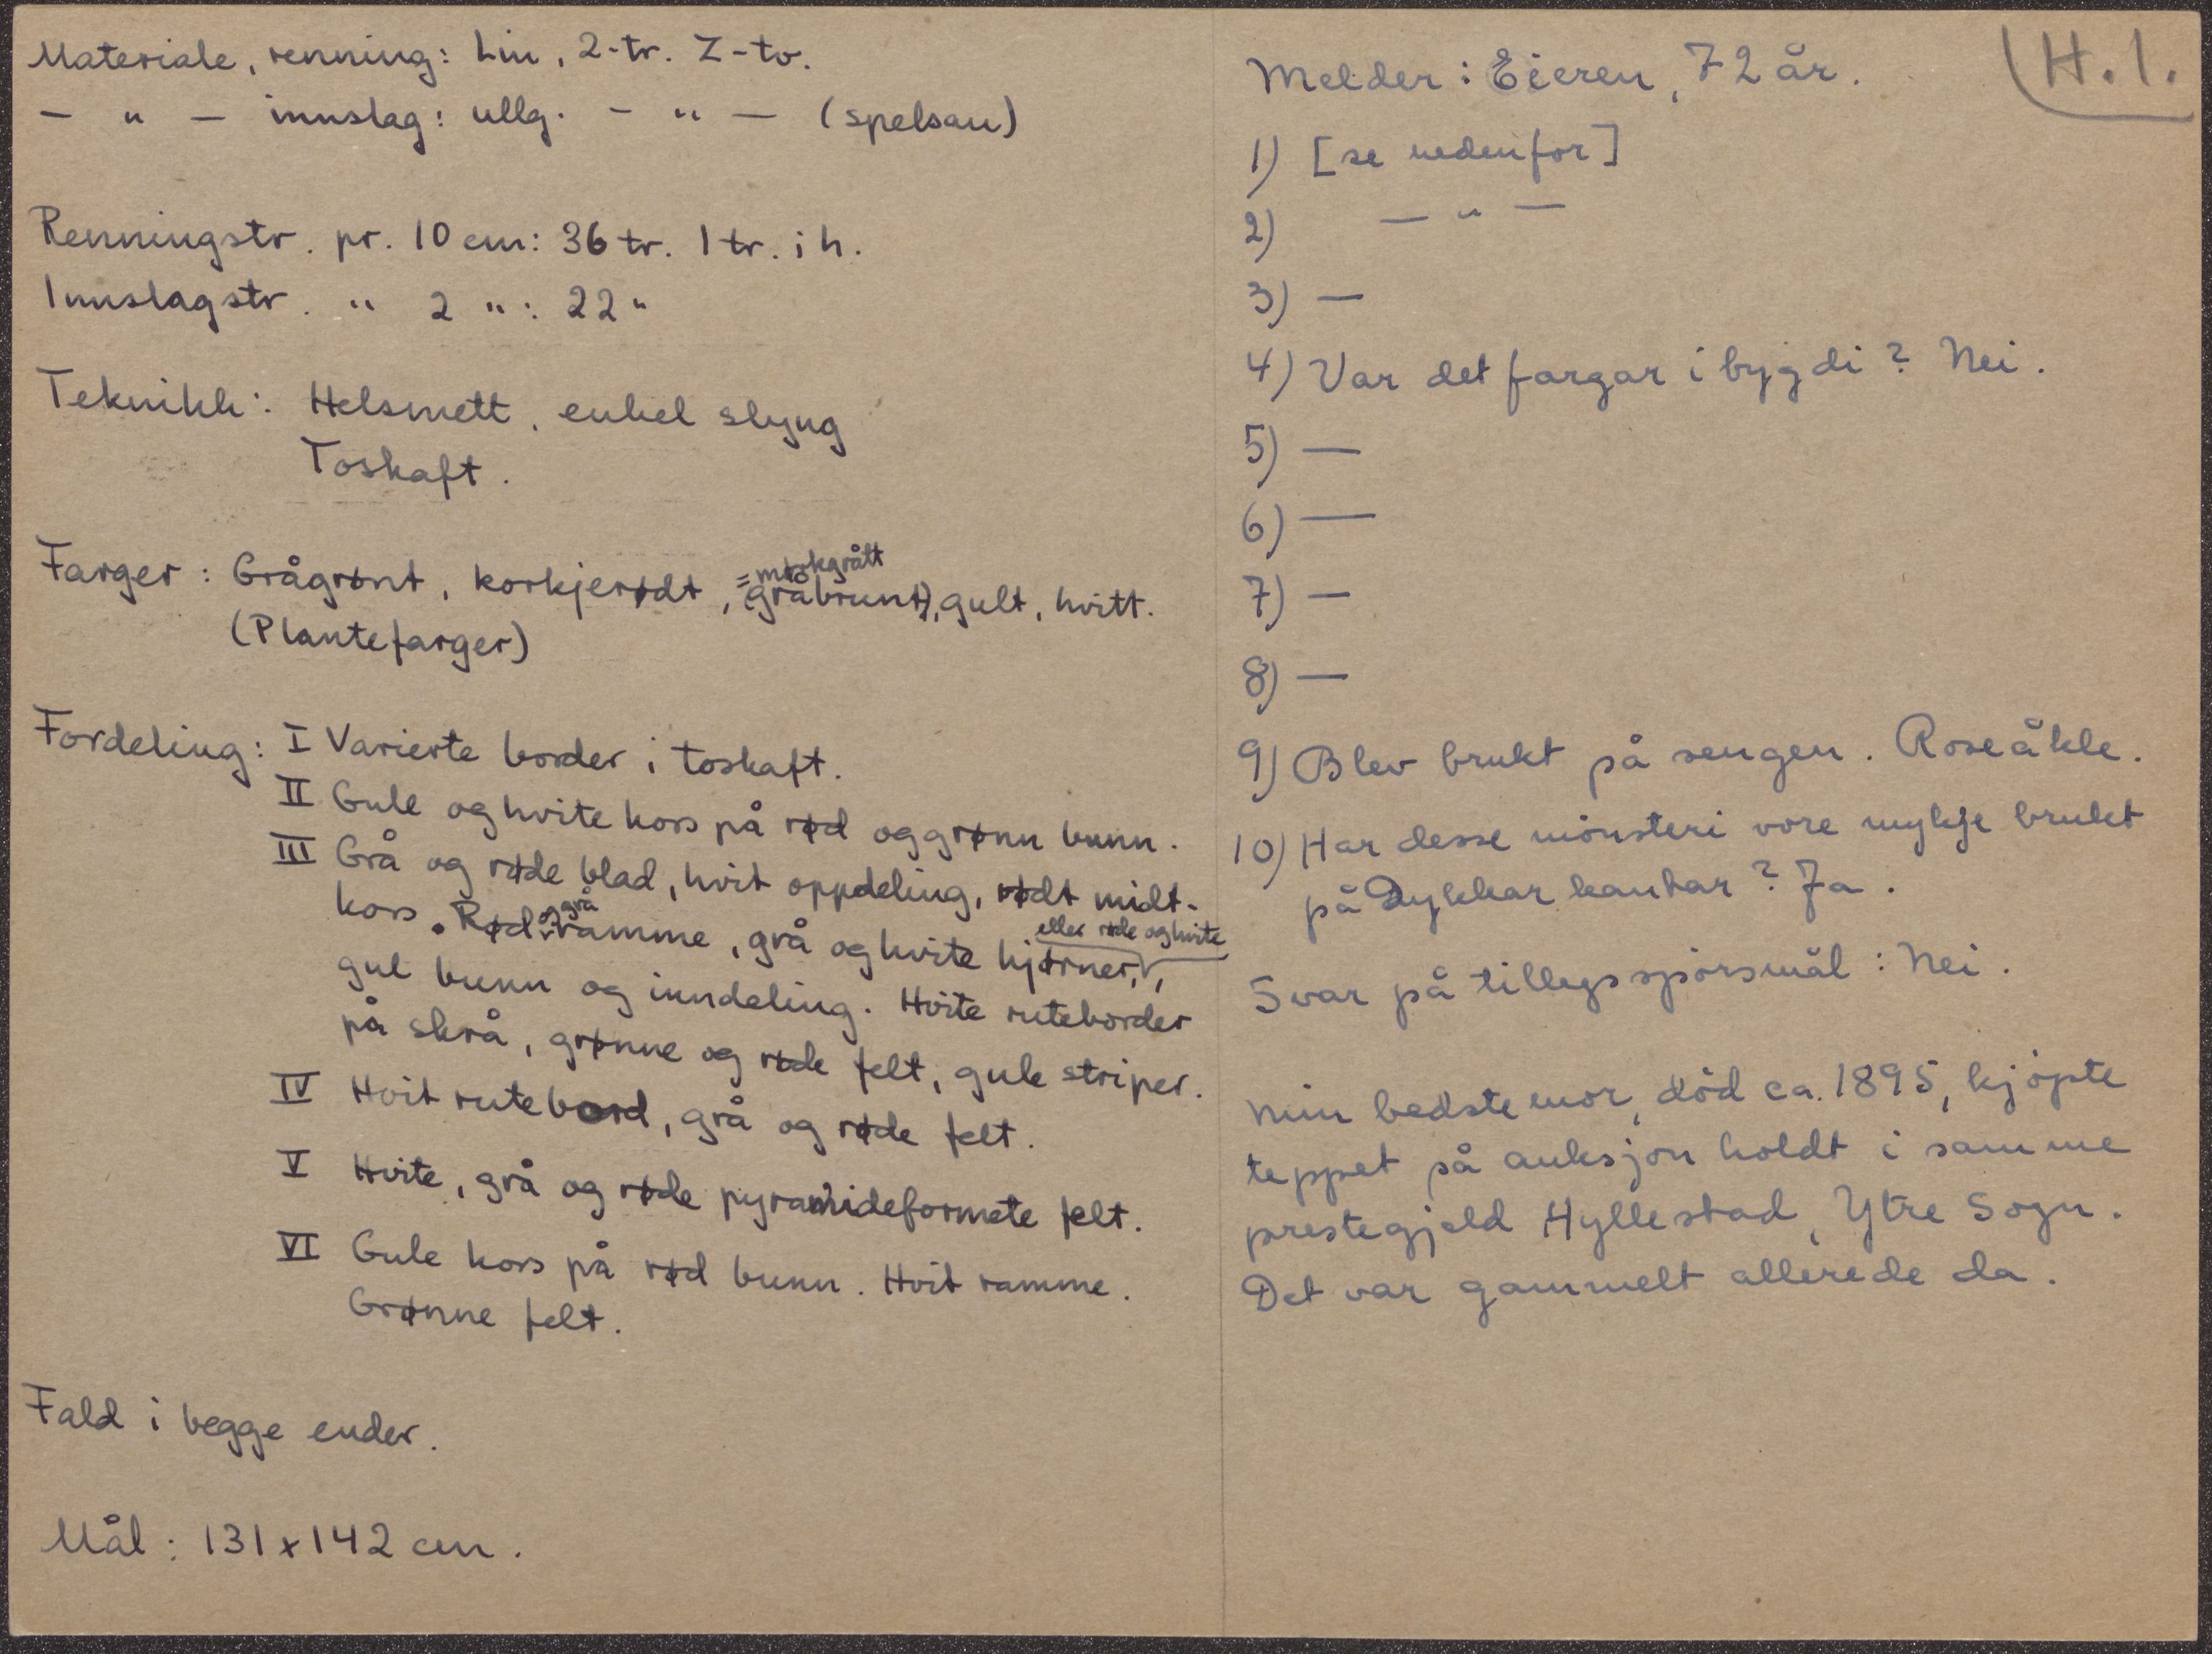 Materiale, renning: Lin, 2-tr. Z-tv.
- " - innslag: ullg. - " - (spelsau)
Renningstr. pr. 10 cm: 36 tr. 1 tr. i h.
Innslagstr. " 2 " : 22 "
Teknikk: Helsmett, enkel slyng
Toskaft.
Farger: Grågrønt, korkjerødt, (gråbrunt), gult, hvitt.
= mørkgrått
(Plantefarger)
Fordeling: I Varierte border i toskaft.
II Gule og hvite kors på rød og grønn bunn.
III Grå og røde blad, hvit oppdeling, rødt midt-
kors. Rød og grå ramme, grå og hvite hjørner, eller røde og hvite,
gul bunn og inndeling. Hvite ruteborder
på skrå, grønne og røde felt, gule striper.
IV Hvit rutebord, grå og røde felt.
V Hvite, grå og røde pyramideformete felt.
VI Gule kors på rød bunn. Hvit ramme.
Grønne felt.
Fald i begge ender.
Mål: 131 x 142 cm.
H.1.
Melder: Eieren, 72 år.
1) [se nedenfor]
2) - " -
3) -
4) Var det fargar i bygdi? Nei.
5) -
6) -
7) -
8) -
9) Blev brukt på sengen. Roseåkle.
10) Har desse mönsteri vore mykje brukt
på Dykkar kantar? Ja.
Svar på tilleggsspörsmål: Nei.
Min bedstemor, död ca. 1895, kjöpte
teppet på auksjon holdt i samme
prestegjeld Hyllestad, Ytre Sogn.
Det var gammelt allerede da.